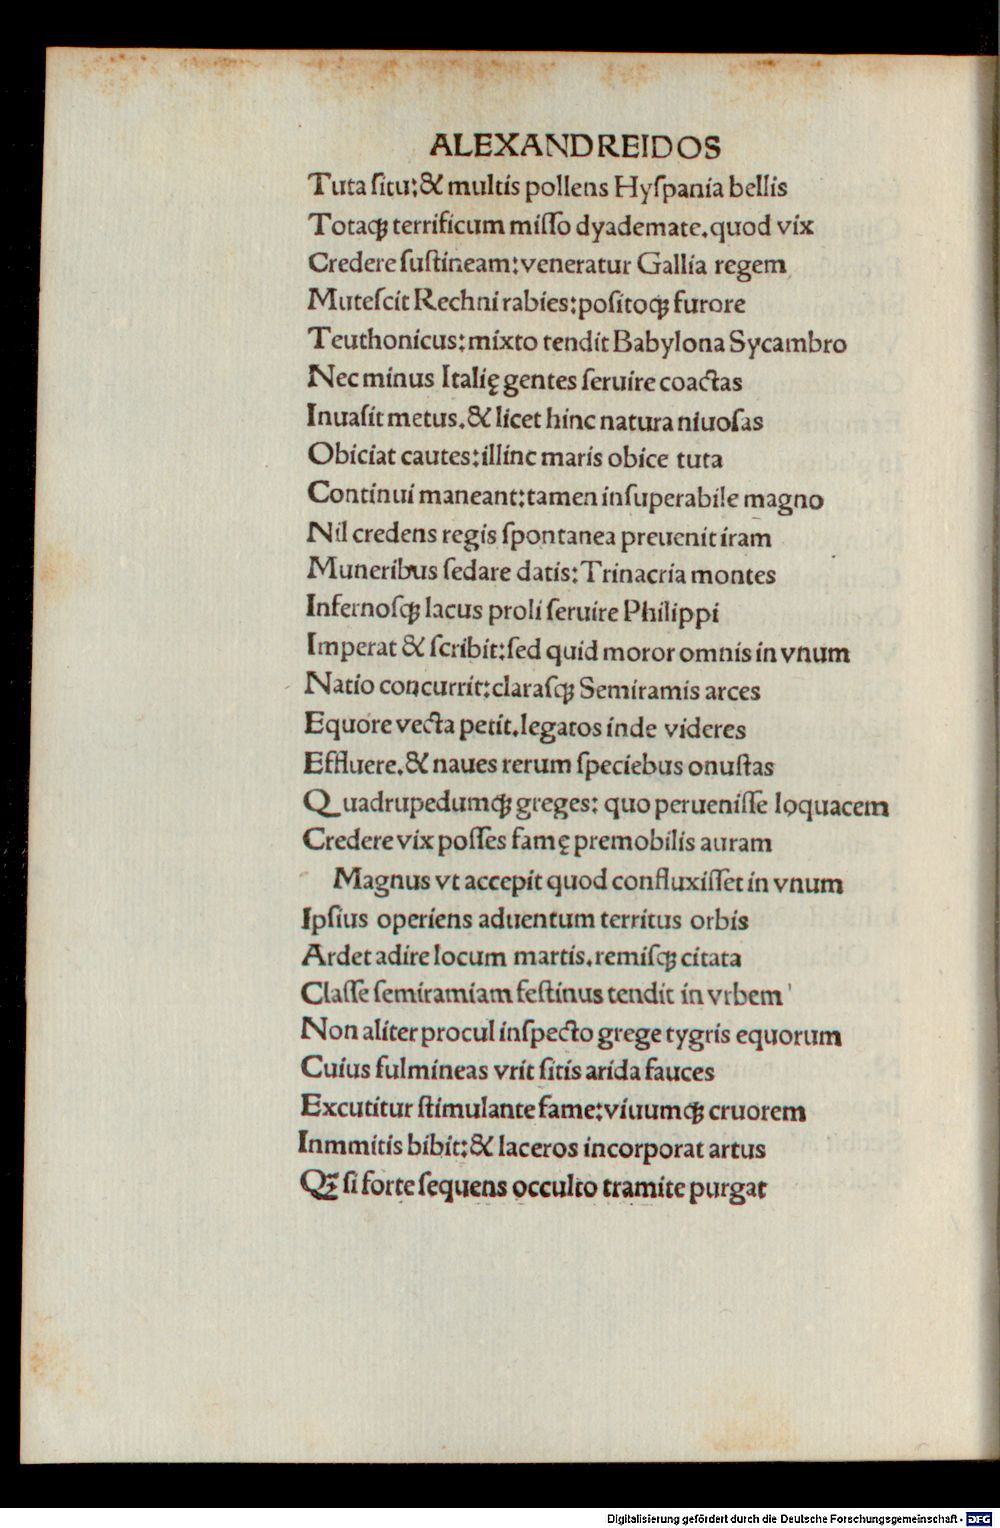 ALEXANDREIDOS
Tuta ſitu:& multis pollens Hyſpania bellis
Totaqꝫ terrificum miſſo dyademate.quod vix
Credere ſuſtineam:veneratur Gallia regem
Muteſcit Rechni rabies:poſitoqꝫ furore
Teuthonicus:mixto tendit Babylona Sycambro
Nec minus Italię gentes ſeruire coactas
Inuaſit metus.& licet hinc natura niuoſas
Obiciat cautes:illinc maris obice tuta
Continui maneant:tamen inſuperabile magno
Nil credens regis ſpontanea preuenit iram
Muneribus ſedare datis:Trinacria montes
Infernoſqꝫ lacus proli ſeruire Philippi
Imperat & ſcribit:ſed quid moror omnis in vnum
Natio concurrit:claraſqꝫ Semiramis arces
Equore vecta petit.legatos inde videres
Effluere.& naues rerum ſpeciebus onuſtas
Quadrupedumqꝫ greges: quo perueniſſe loquacem
Credere vix poſſes famę premobilis auram
Magnus vt accepit quod confluxiſſet in vnum
Ipſius operiens aduentum territus orbis
Ardet adire locum martis.remiſqꝫ citata
Claſſe ſemiramiam feſtinus tendit in vrbem
Non aliter procul inſpecto grege tygris equorum
Cuius fulmineas vrit ſitis arida fauces
Excutitur ſtimulante fame:viuumqꝫ cruorem
Inmmitis bibit:& laceros incorporat artus
Qꝫ ſi forte ſequens occulto tramite purgat
Digitalisierung gefördert durch die Deutsche Forschungsgemeinschaft - DFG